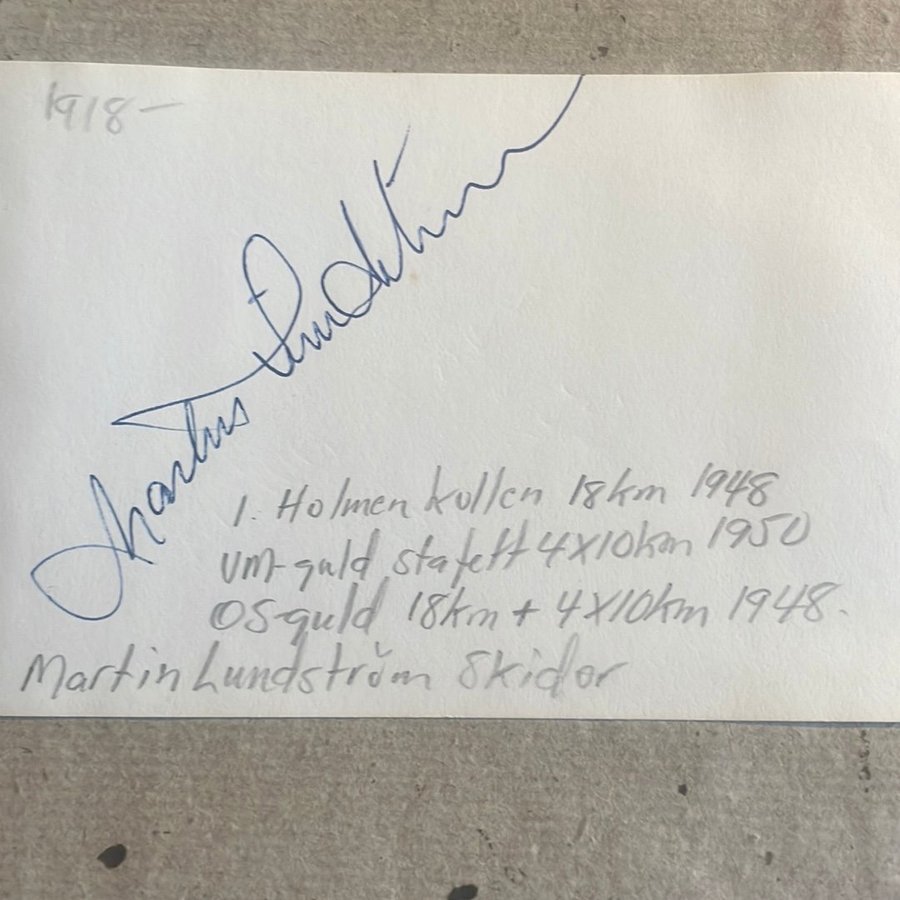 1918-
Martin Lundström
1. Holmenkollen 18km 1948
VM-guld stafett 4x10km 1950
OS-guld 18km + 4x10km 1948.
Martin Lundström Skidor